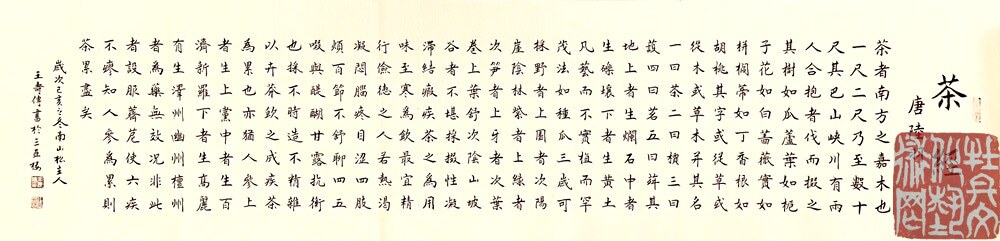 茶
唐陸
茶者南方之嘉木也
一尺二尺乃至數十
尺其巴山峽川有兩
人合抱者伐而掇之
其樹如瓜蘆葉如梔
子花如白薔薇實如
栟櫚蒂如丁香根如
胡桃其字或從草或
從木或草木并其名
一曰茶二曰檟三曰
蔎四曰茗五曰荈其
地上者生爛石中者
生礫壤下者生黃土
凡藝而不實植而罕
茂法如種瓜三歲可
採野者上園者次陽
崖陰林紫者上綠者
次笋者上牙者次葉
卷上葉舒次陰山坡
谷者不堪採掇性凝
滯結瘕疾茶之為用
味至寒為飲最宜精
行儉德之人若熱渴
凝悶腦疼目澀四肢
煩百節不舒聊四五
啜與醍醐甘露抗衡
也採不時造不精雜
以卉莽飲之成疾茶
為累也亦猶人參上
者生上黨中者生百
濟新羅下者生高麗
有生澤州幽州檀州
者為藥無效況非此
者設服薺苨使六疾
不瘳知人參為累則
茶累盡矣
歲次己亥之冬南山松主人
王壽偉書於三